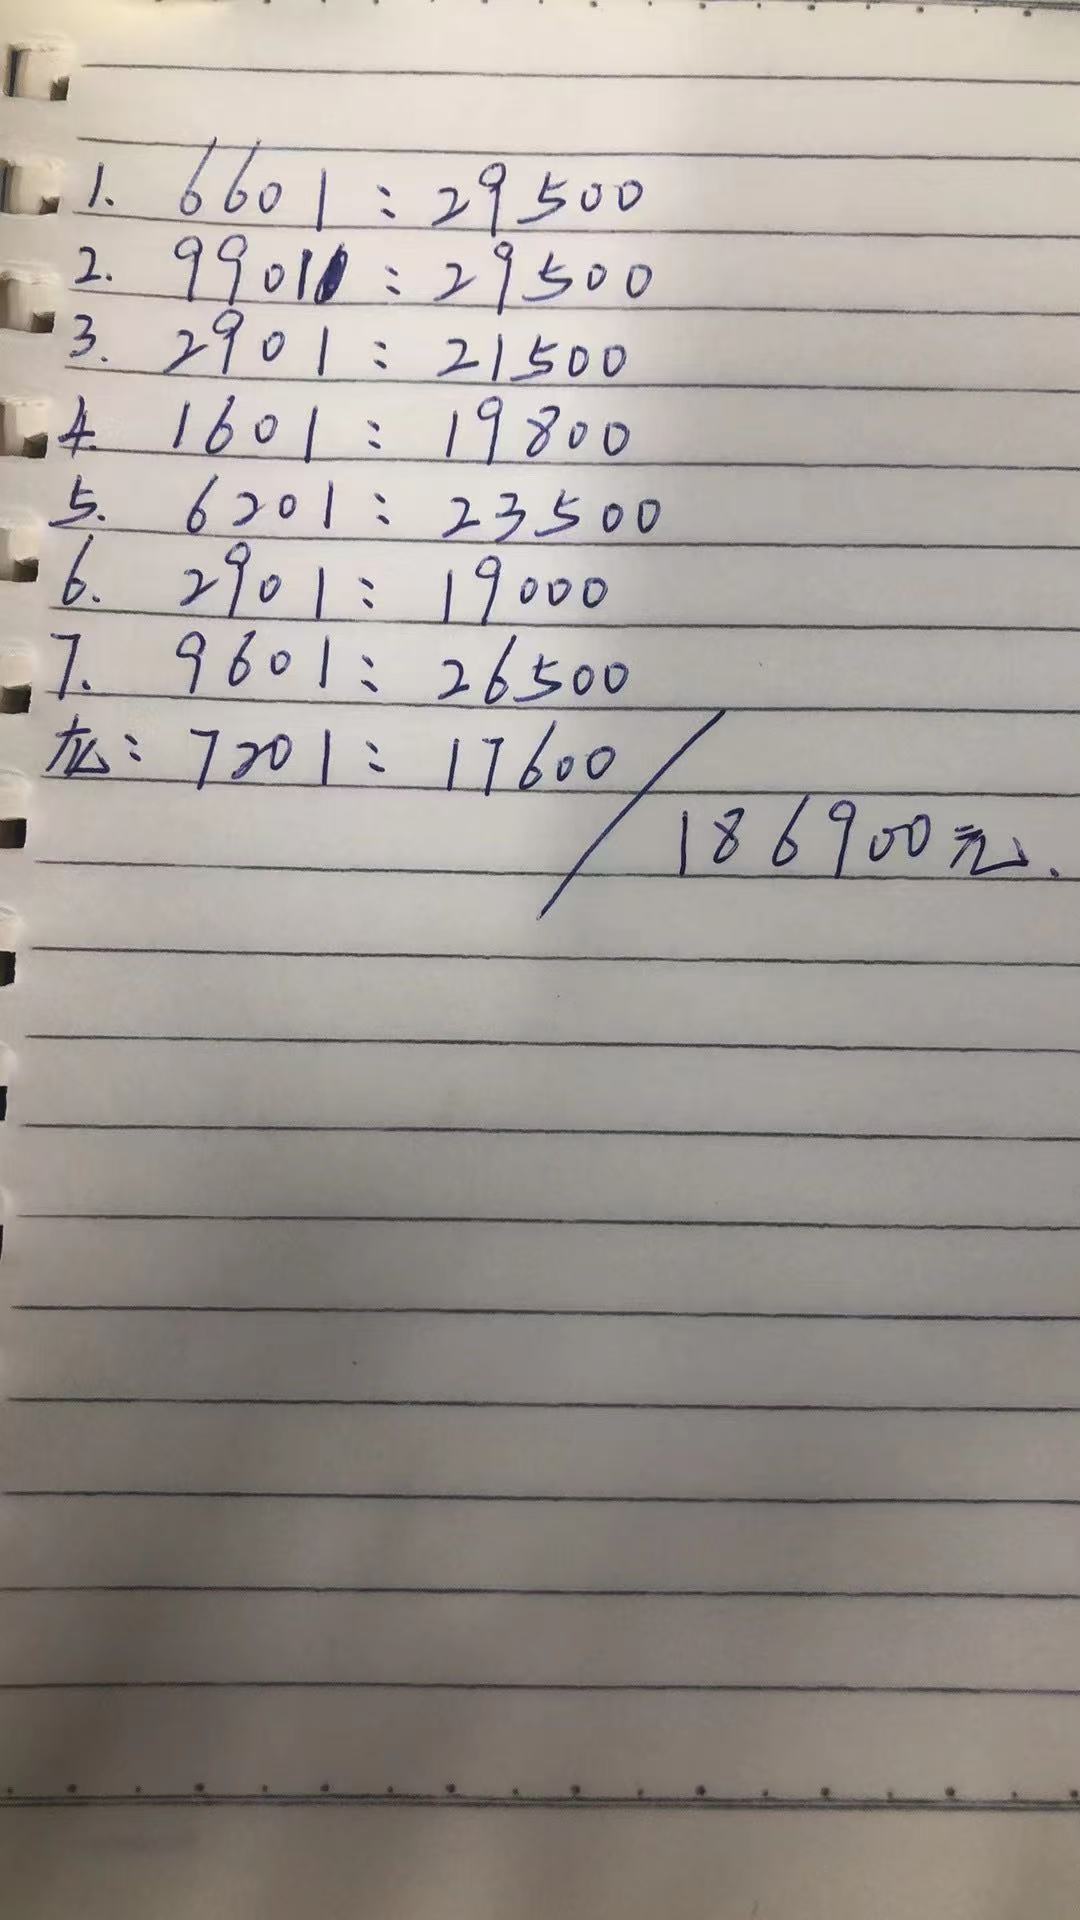 1. 6601：29500
2. 9901：29500
3. 2901：21500
4. 1601：19800
5. 6201：23500
6. 2901：19000
7. 9601：26500
龙：7201：17600
186900元.